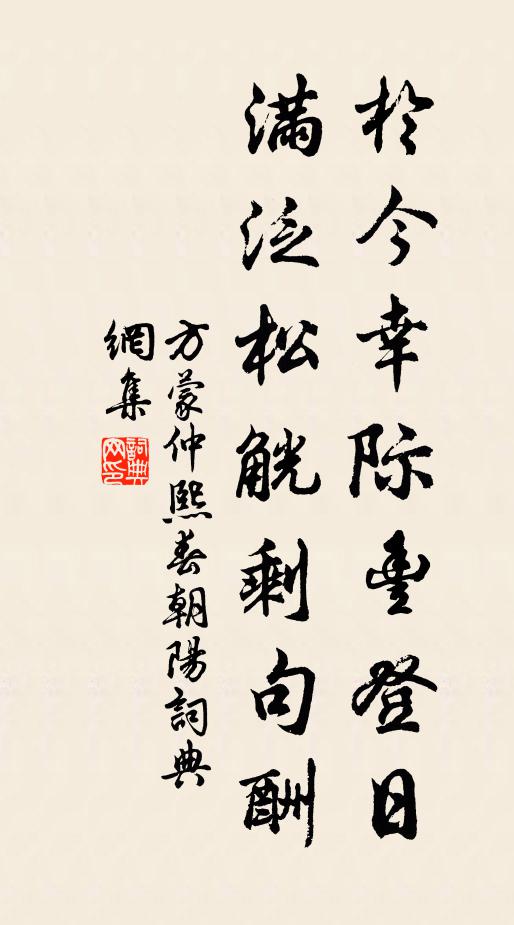 於今幸际豊登日
满泛松觥剩句酬
方蒙仲熙春朝陽詞典
網集
詞典
网印